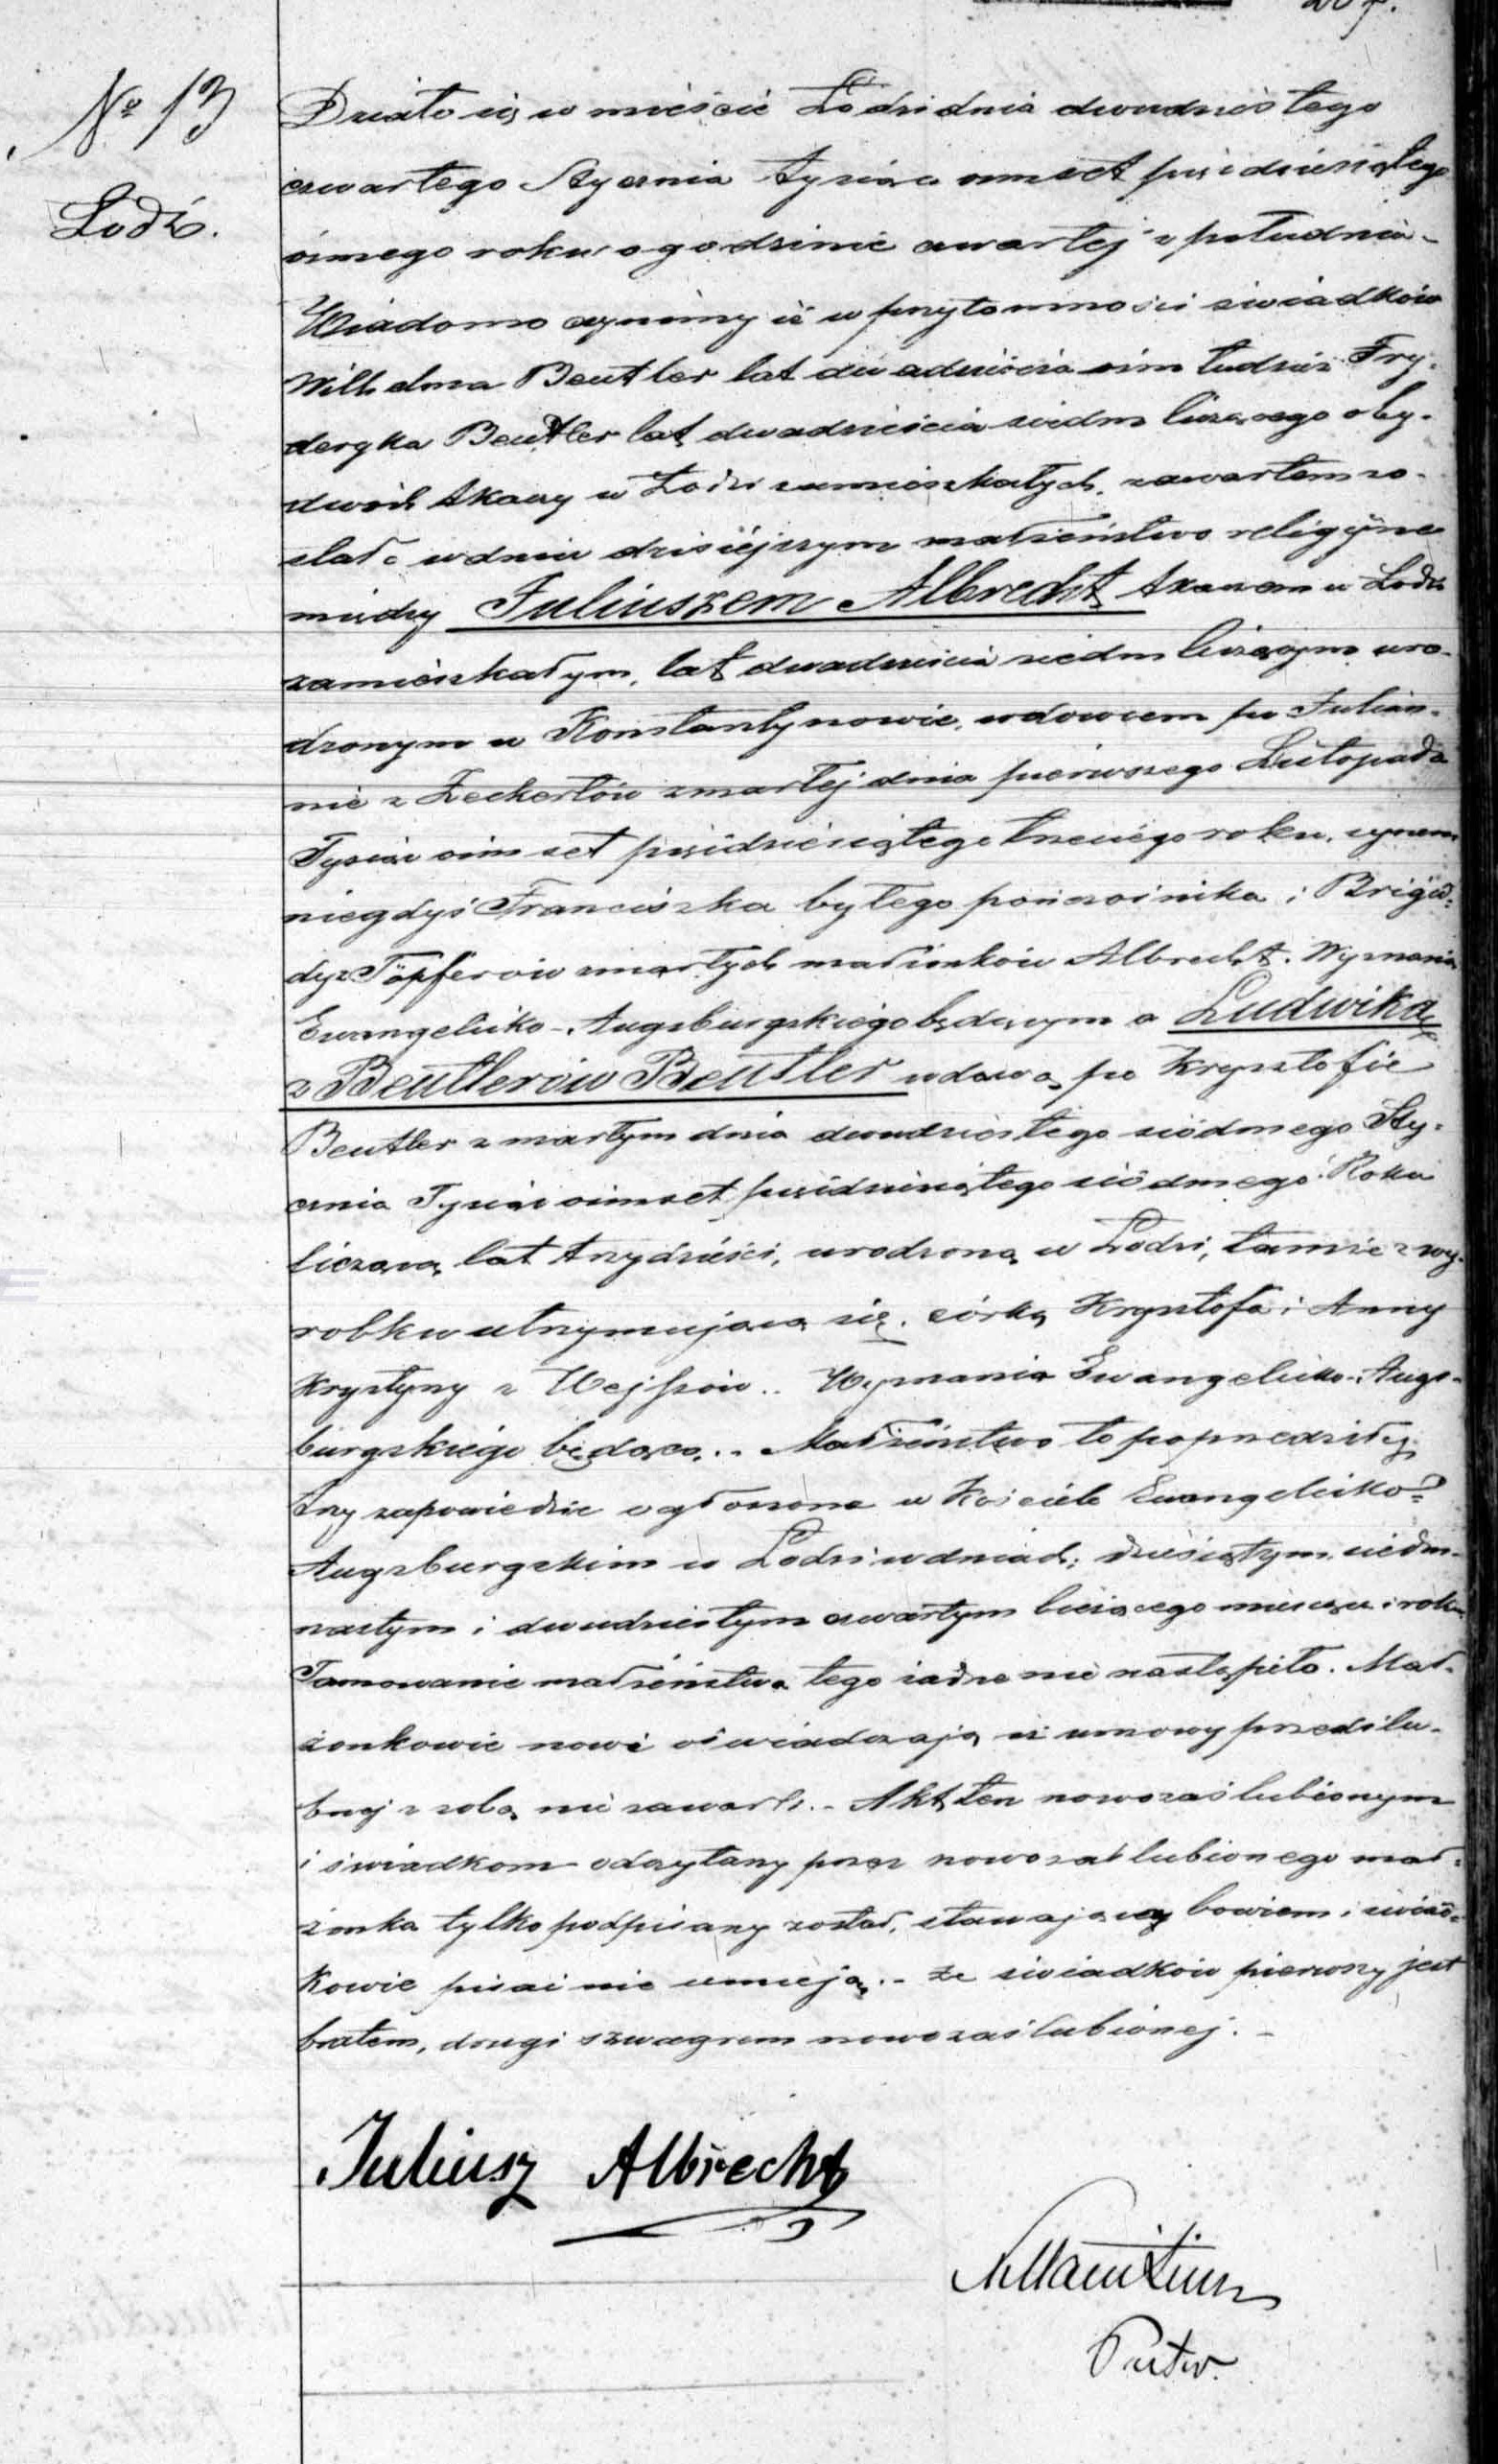 № 13
Łódź.
Działo się w mieście Łodzi dnia dwudziestego
czwartego Stycznia tysiąc ośmset pięćdziesiątego
ósmego roku o godzinie czwartej z południa.
Wiadomo czynimy iż w przytomności świadków
Wilhelma Beutler lat dwadzieścia ośm tudzież Fry-
deryka Beutler lat dwadzieścia siedm liczącego oby-
dwóch tkaczy w Łodzi zamieszkałych, zawartem zo-
stało w dniu dzisiejszym małżeństwo religijne
między Juliuszem Albrecht tkaczem w Łodzi
zamieszkałym, lat dwadzieścia siedm liczącym uro-
dzonym w Konstantynowie, wdowcem po Julian-
nie z Zeckertów zmarłej dnia pierwszego Listopada
Tysiąc ośmset pięćdziesiątego trzeciego roku, synem
niegdyś Franciszka byłego pończośnika i Brigid-
dy z Töpferów zmarłych małżonków Albrecht. Wyznania
Ewangelicko-Augsburgskiego będącym a Ludwiką
z Beutlerów Beutler wdową po Krysztofie
Beutler zmarłym dnia dwudziestego siódmego Sty-
cznia Tysiąc ośmset pięćdziesiątego siódmego Roku
liczącą lat trzydzieści, urodzoną w Łodzi, tamże z wy-
robku utrzymującą się, córką Krysztofa i Anny
Krystyny z Wejssów.. Wyznania Ewangelicko-Augs-
burgskiego będącą.. Małżeństwo to poprzedziły
trzy zapowiedzie ogłoszone w Kościele Ewangelicko-
Augsburgskim w Łodzi w dniach; dziesiątym, siedm-
nastym i dwudziestym czwartym bieżącego miesiąca i roku.
Tamowanie małżeństwa tego żadne nie nastąpiło. Mał-
żonkowie nowi oświadczają iż umowy przedślu-
bnej z sobą nie zawarli.- Akt ten nowozaślubionym
i świadkom odczytany przez nowozaślubionego mał-
żonka tylko podpisany został, stawający bowiem i świad-
kowie pisać nie umieją.- Ze świadków pierwszy jest
bratem, drugi szwagrem nowozaślubionej.-
Juliusz Albrecht